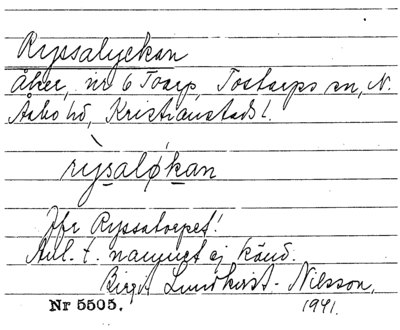 Ryssalyckan
Åker, nr 6 Toarp, Tostarps sn, N.
Åsbo hd, Kristianstads l.
rỳsaløkan
Jfr Ryssatorpet!
Anl. t. namnet ej känd.
Birgit Lundkvist-Nilsson,
Nr 5505. 1941.